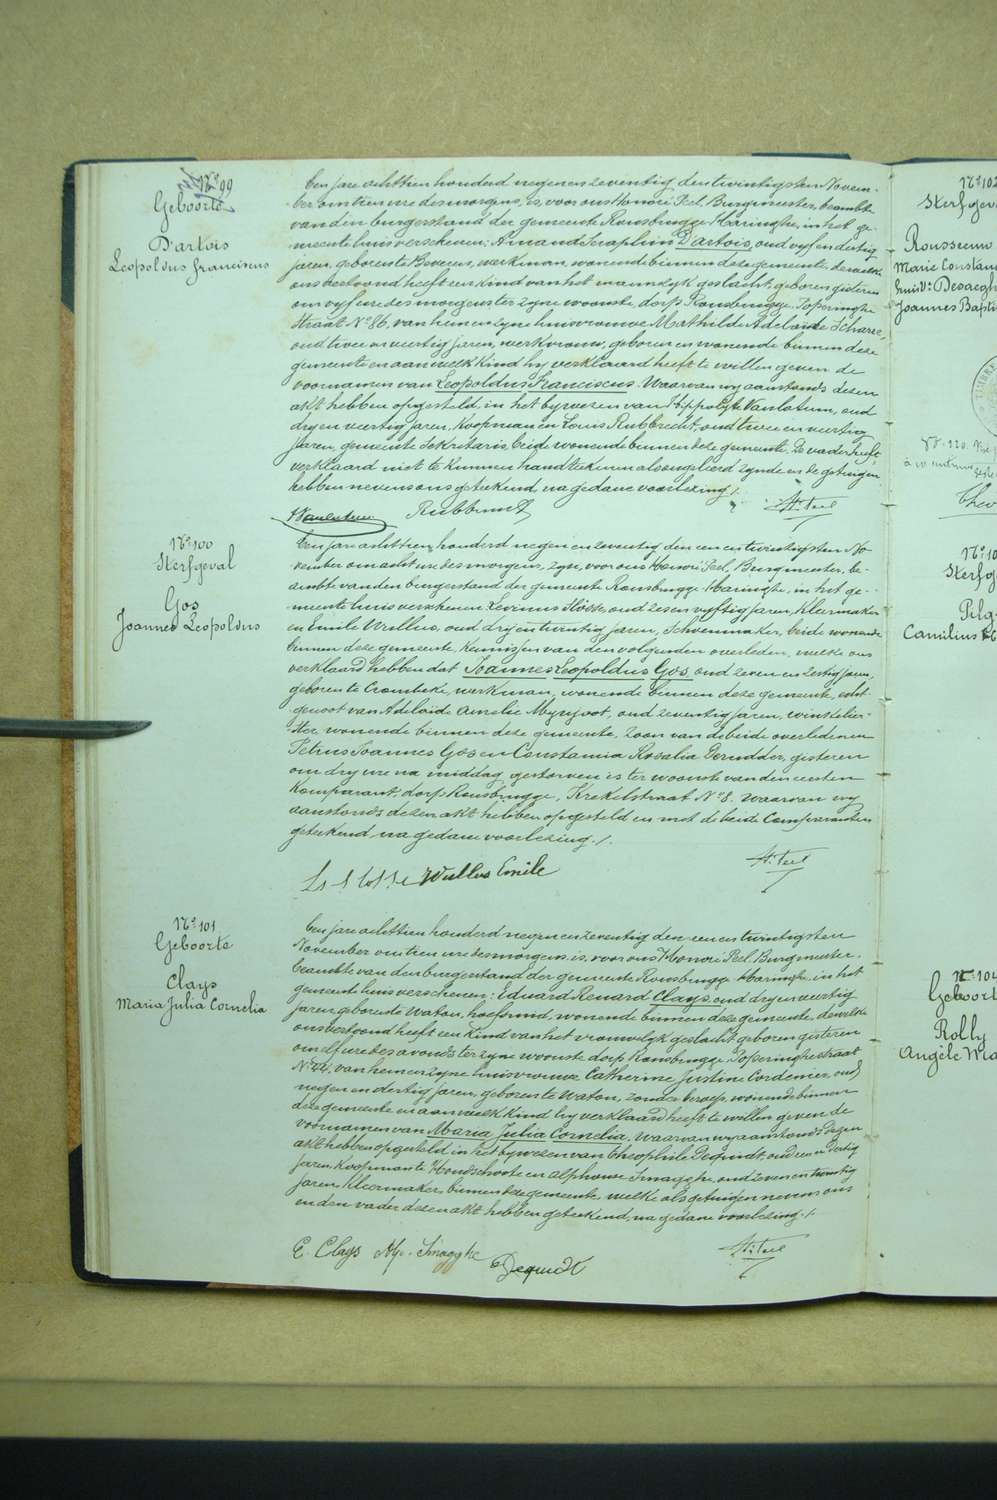 Nº 99
Geboorte
D'artois
Leopoldus franciscus
Een jare achttien honderd negen en zeventig den twintigsten Novem-
ber om tien ure des morgens, is, voor ons Honoré Peel, Burgmeester, beambte
van den burgerstand der gemeente Rousbrugge-Haringhe, in het ge-
meente huis verschenen: Amand Seraphin D'artois, oud vyf en dertig
jaren, geboren te Beveren, werkman, wonende binnen deze gemeente, dewelke
ons vertoond heeft een kind van het mannelyk geslacht, geboren gisteren
om vyf ure des morgens ter zyne woonste dorp Rousbrugge, Poperinghe
straat Nº 86, van hem en zyne huisvrouwe Mathilde Adelaide
oud twee en veertig jaren, werkvrouw, geboren en wonende binnen deze
gemeente en aan welk kind hy verklaard heeft te willen geven de
voornamen van Leopoldus Franciscus. Waarvan wy aanstonds dezen
akt hebben opgesteld, in het bywezen van Hippolyte Vanlatum, oud
dry en veertig jaren, Koopman en Louis Rubbrecht, oud twee en veertig
jaren, gemeente Sekretaris, beide wonende binnen deze gemeente. De vader heeft
verklaard niet te kunnen handteekenen als ongeleerd zynde en de getuigen
hebben nevens ons geteekend, na gedane voorlezing /.
Rubbrecht
H. Peel
Nº 100
Sterfgeval
Gos
Joannes Leopoldus
Een jare achttien honderd negen en zeventig den een en twintigsten No
vember om acht ure des morgens, zyn, voor ons Honoré Peel, Burgmeester, be-
ambte van den burgerstand der gemeente Rousbrugge-Haringhe, in het ge-
meente huis verschenen Levinus oud zes en vyftig jaren, Kleermaker
en Emile Wullus, oud dry en twintig jaren, Schoenmaker, beide wonende
binnen deze gemeente, kennissen van den volgenden overleden, welke ons
verklaard hebben dat Joannes Leopoldus Gos, oud zeven en zestig jaren,
geboren te Crombeke, werkman, wonende binnen deze gemeente, echt-
genoot van Adelaide Amelie oud zeventig jaren, winkelier-
ster, wonende binnen deze gemeente, zoon van de beide overledenen
Petrus Joannes Gos en Constantia Rosalia Derudder, gisteren
om dry ure na middag, gestorven is ter woonste van den eersten
Komparant, dorp Rousbrugge, Krekelstraat Nº 8. Waarvan wy
aanstonds dezen akt hebben opgesteld en met de beide Comparanten
geteekend, na gedane voorlezing. /.
Wullus Emile
H. Peel
Nº 101
Geboorte
Clays
Maria Julia Cornelia
Een jare achttien honderd negen en zeventig den een en twintigsten
November om tien ure des morgens, is, voor ons Honoré Peel, Burgmeester,
beambte van den burgerstand der gemeente Rousbrugge-Haringhe, in het
gemeente huis verschenen: Eduard Renard Clays, oud dry en veertig
jaren, geboren te Watou, hoefsmid, wonende binnen deze gemeente, dewelke
ons vertoond heeft een kind van het vrouwelyk geslacht, geboren gisteren
om elf ure des avonds ter zyne woonste dorp Rousbrugge, Poperinghestraat
van hem en zyne huisvrouwe Catherine Justine Cordenier, oud
negen en dertig jaren, geboren te Watou, zonder beroep, wonende binnen
deze gemeente en aan welk kind hy verklaard heeft te willen geven de
voornamen van Maria Julia Cornelia, Waarvan wy aanstonds dezen
akt hebben opgesteld in het bywezen van Théophile Dequidt, oud een en dertig
jaren, koopman te Hondschoote en Alphonse Smagghe, oud zeven en twintig
jaren, Kleermaker, binnen deze gemeente, welke als getuigen nevens ons
en den vader dezen akt hebben geteekend, na gedane voorlezing. /.
E. Clays Alp. Smagghe
Dequidt
H. Peel
Nº 102
Sterfgev
Rousseeuw
Marie Constan
huisv: Desaegh
Joannes Bapti
Sterfg
Pilg
Camilius
Nº 104
Geboort
Rolly
Angèle Ma